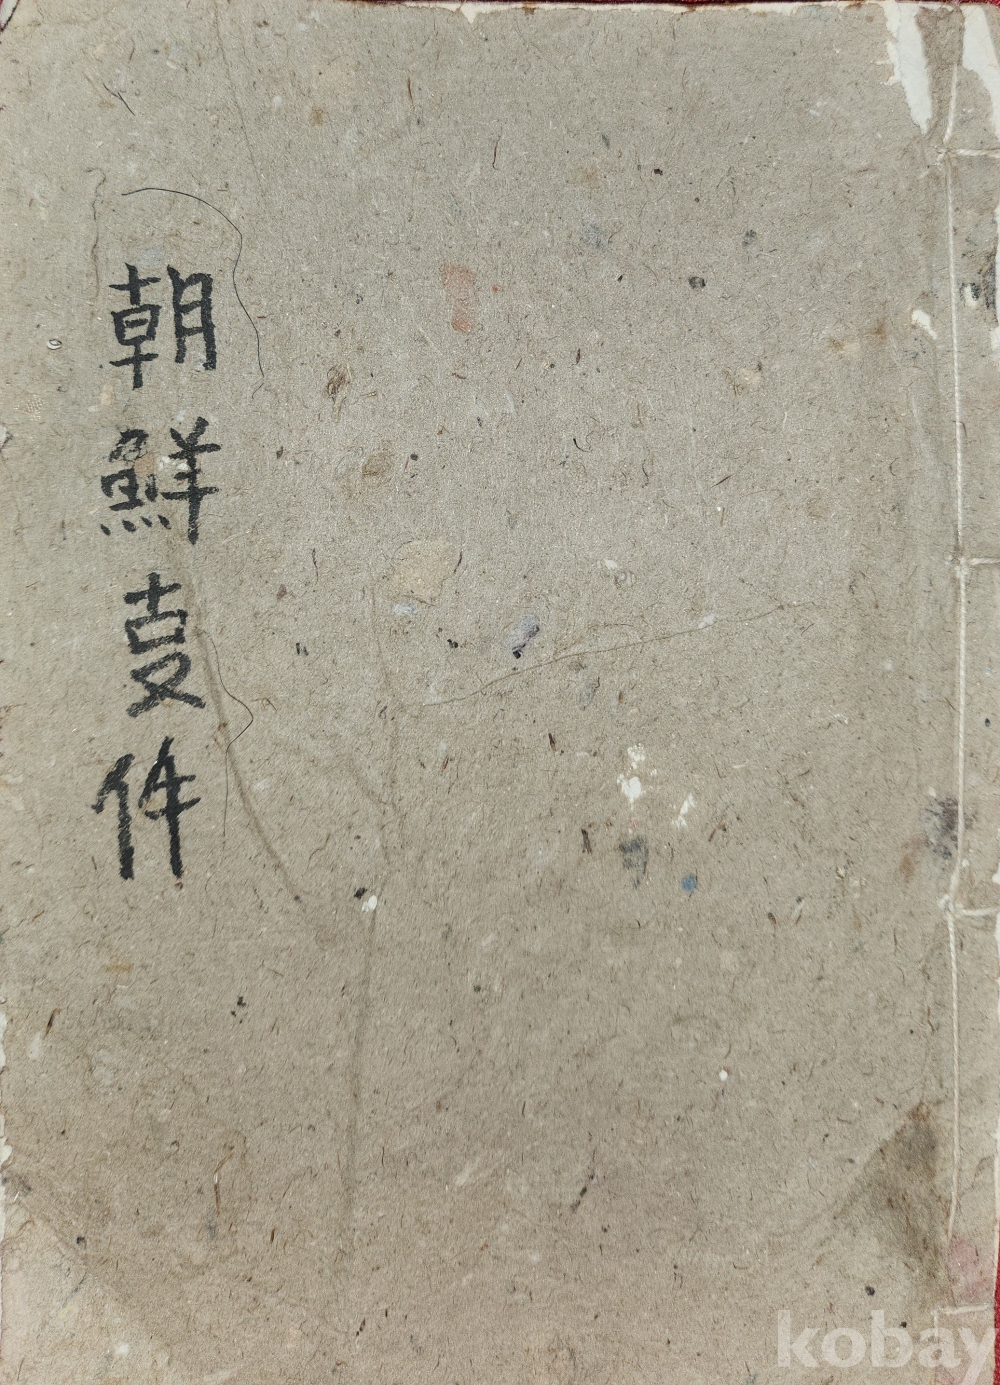 朝鮮叓件
kobay